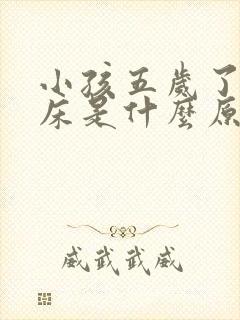 小孩五歲了
床是什麼原
威武武威